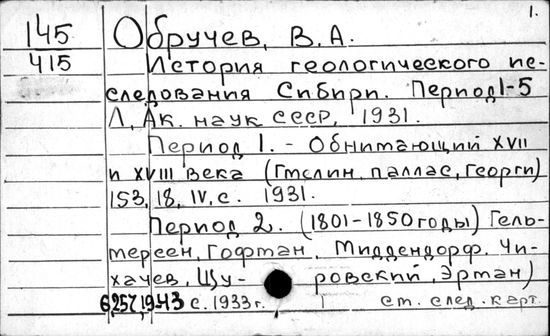 1.
145
415
Обручев, В.А.
История геологического ис-
следования Сибири. Период 1-5
Л, Ак. наук СССР, 1931.
Период 1. - Обнимающий XVII
и XVIII века (Гмелин, паллас, Георги)
153, 18, IV, с. 1931.
Период 2. (1801-1850 годы) Гель-
мерсен, Гофман, Миддендорф. Чи-
хачев, Щу-ровский, Эрман)
с. 1933 г. см. след. карт.